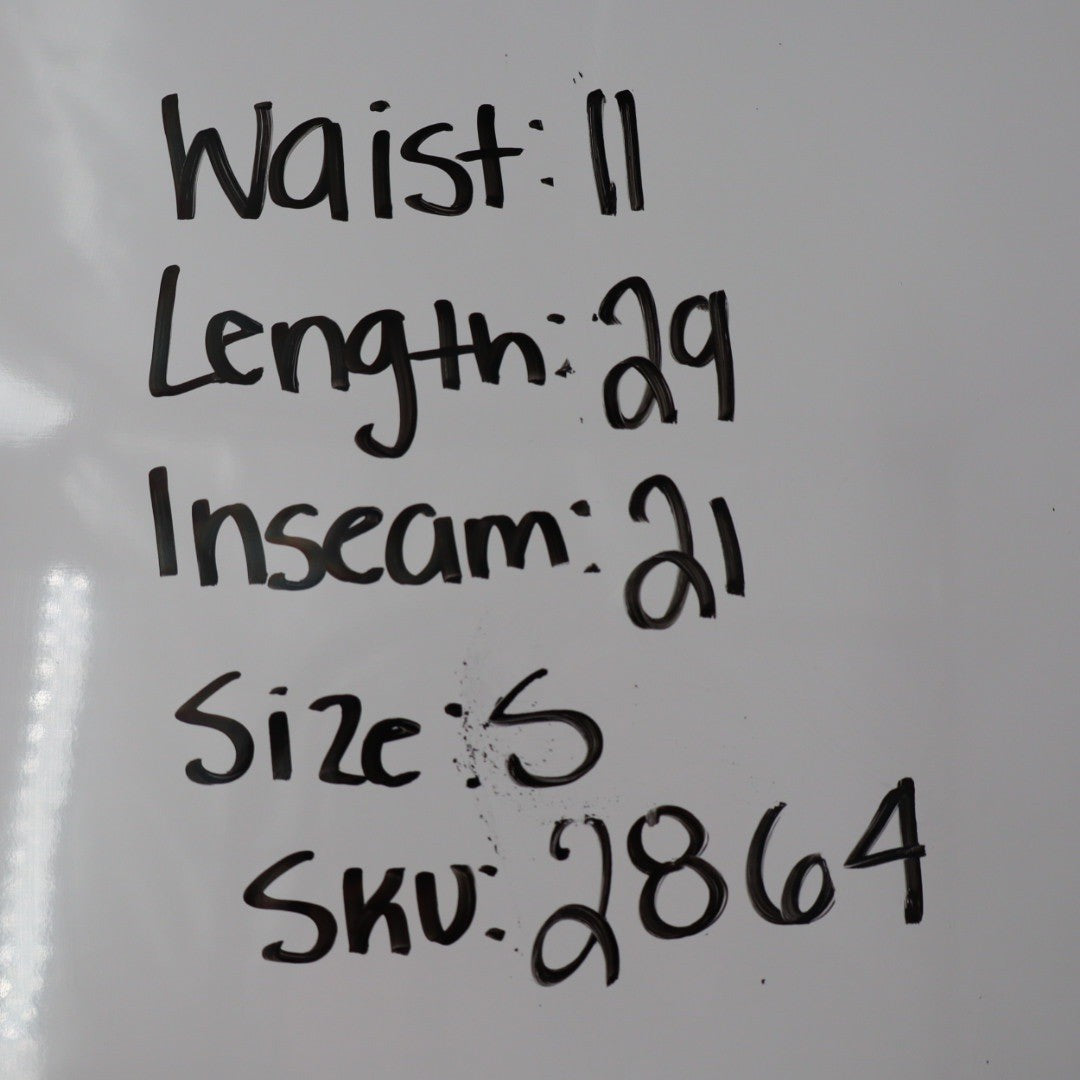 Waist: 11
Length: 29
Inseam: 21
Size: S
SKU: 2864